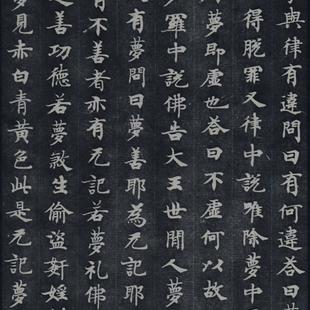 與律有違問曰有何違答曰
得脫罪又律中說唯除夢中
夢即虛也答曰不虛何以故
羅中說佛告大王世間人夢
有夢問曰夢善耶為无記耶
有不善者亦有无記若夢礼佛
善功德若夢煞生偷盜姧婬
見赤白青黃色此是无記夢